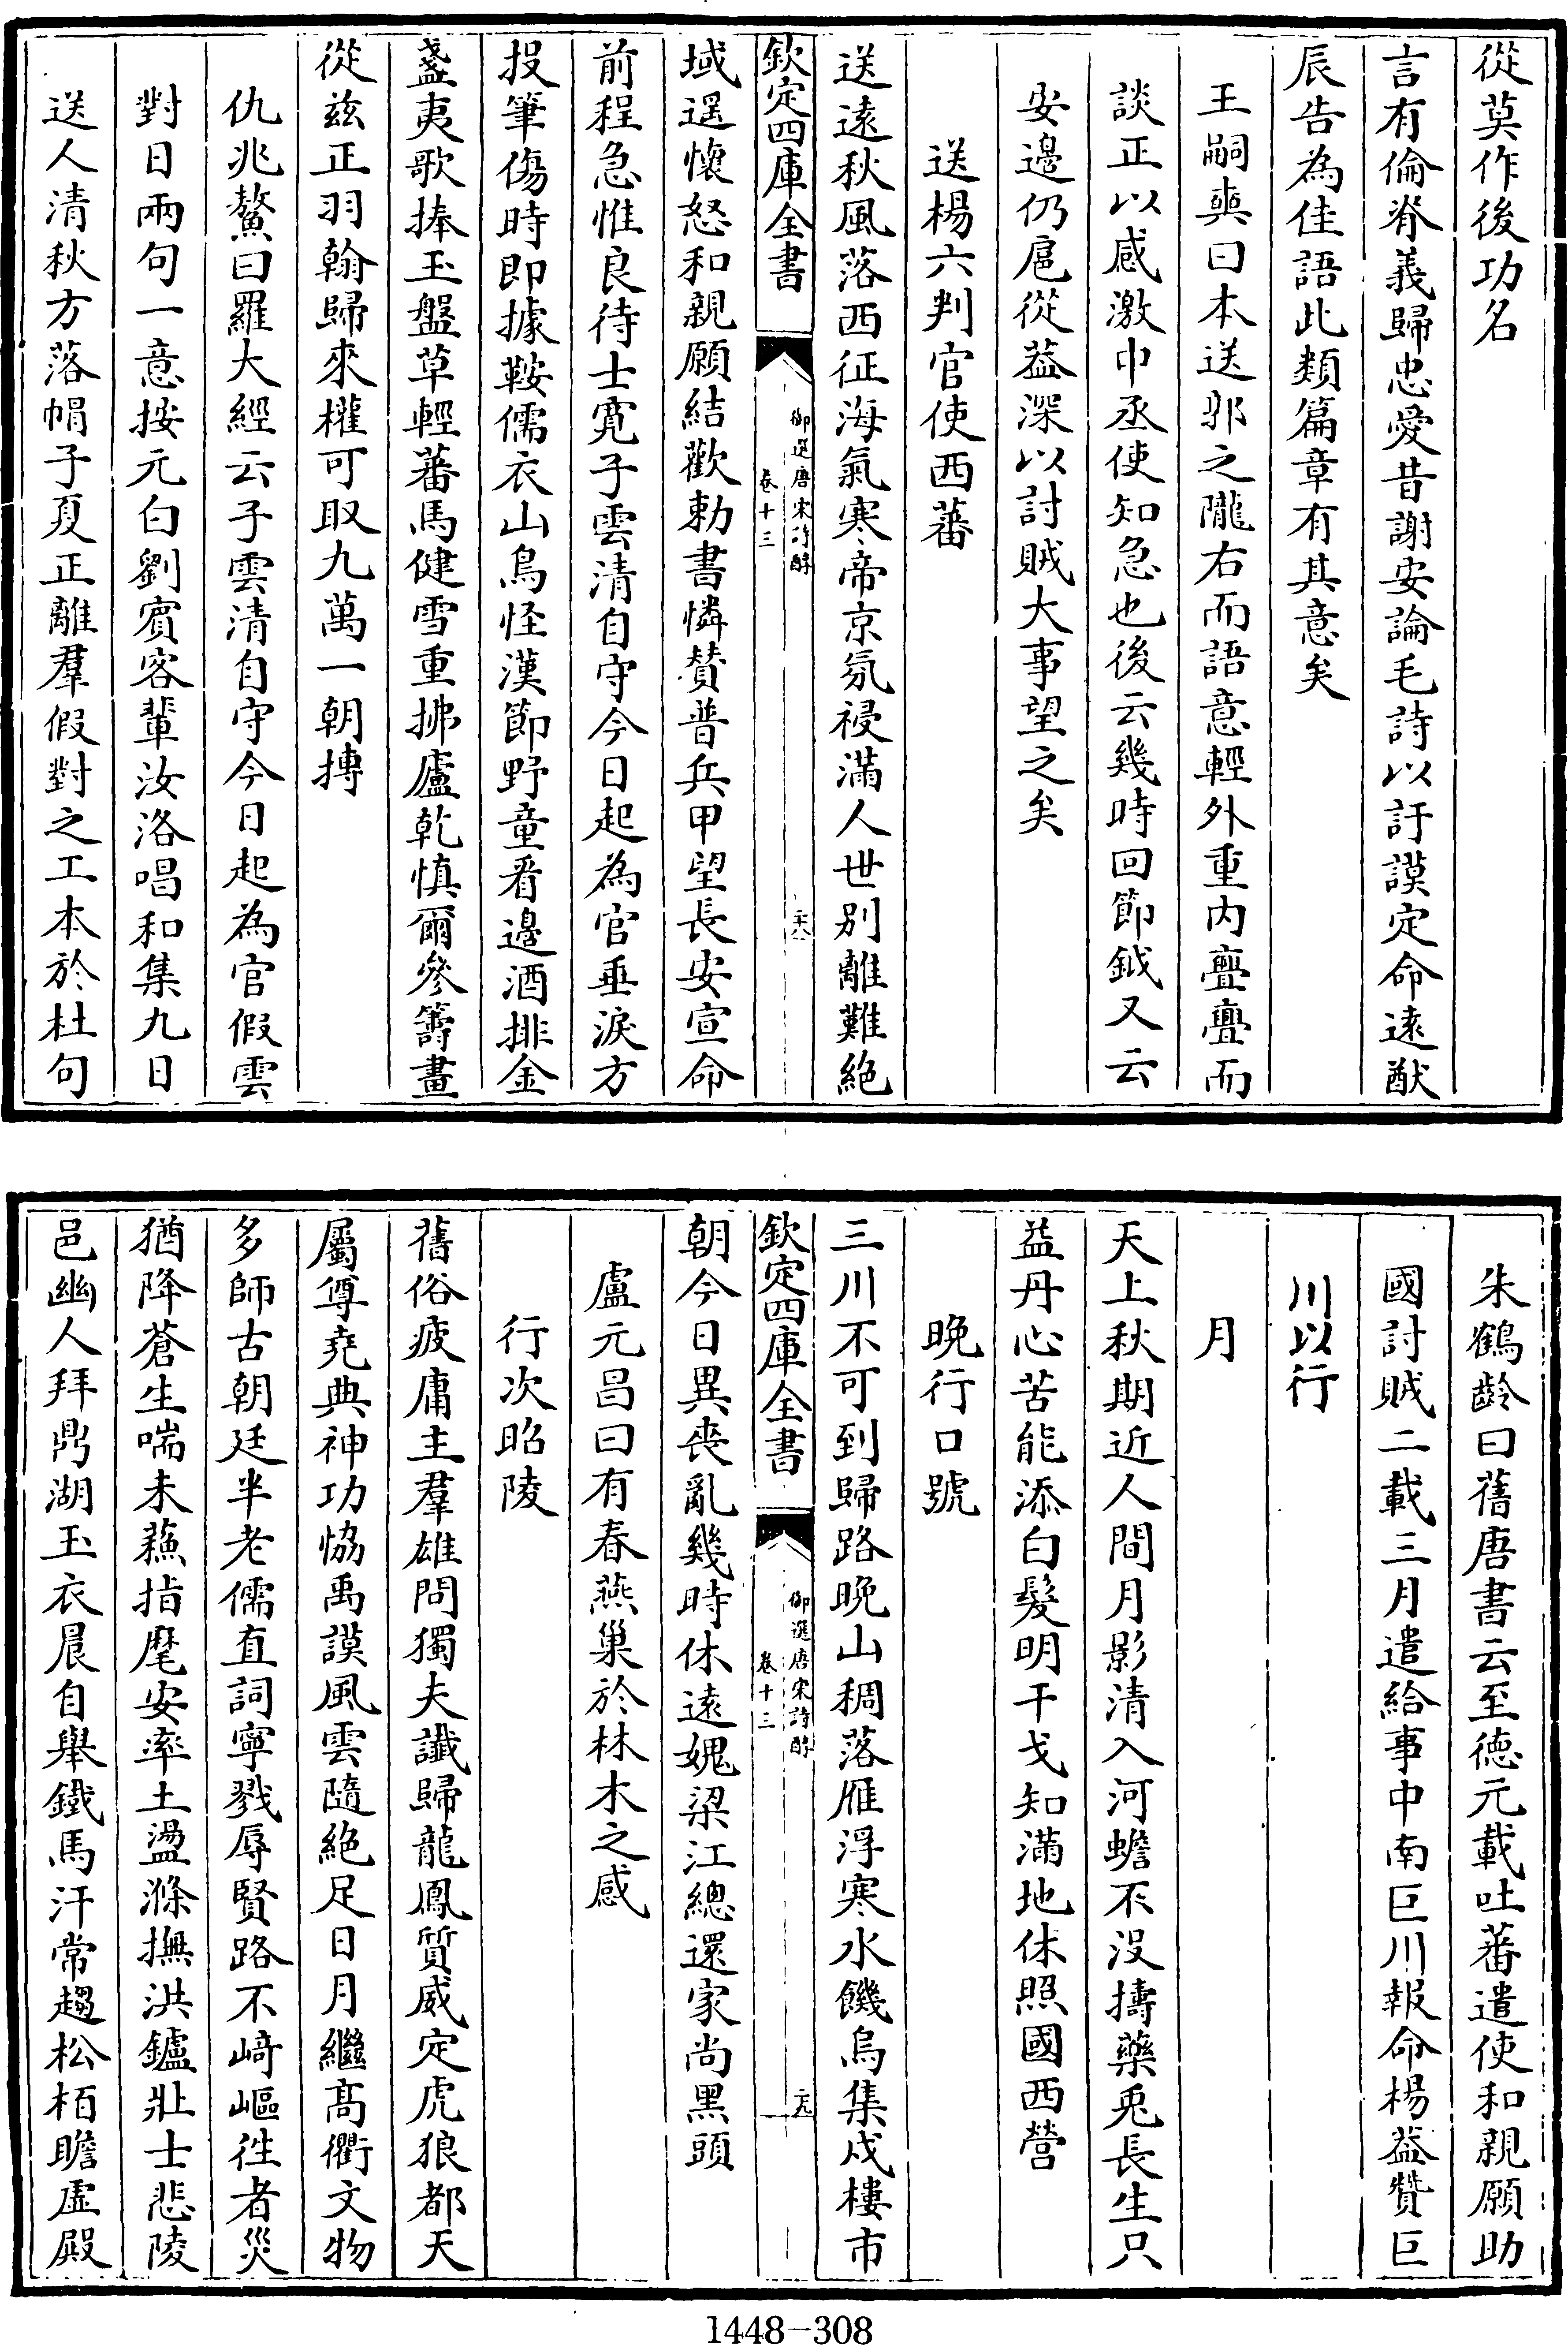 從莫作後功名
言有倫脊義歸忠愛昔謝安論毛詩以訏謨定命遠猷
辰告為佳語此類篇章有其意矣
王嗣奭曰本送郭之隴右而語意輕外重內亹亹而
談正以感激中丞使知急也後云幾時回節鉞又云
安邊仍扈從葢深以討賊大事望之矣
送楊六判官使西蕃
送遠秋風落西征海氣寒帝京氛祲滿人世別離難絶
欽定四庫全書
御選唐宋詩醇
卷十三
二十八
域遥懷怒和親願結歡勅書憐贊普兵甲望長安宣命
前程急惟良待士寛子雲清自守今日起為官垂淚方
投筆傷時即據鞍儒衣山鳥怪漢節野童看邊酒排金
盞夷歌捧玉盤草輕蕃馬健雪重拂廬乾慎爾參籌畫
從兹正羽翰歸來權可取九萬一朝摶
仇兆鰲曰羅大經云子雲清自守今日起為官假雲
對日兩句一意按元白劉賓客輩汝洛唱和集九日
送人清秋方落帽子夏正離羣假對之工本於杜句
朱鶴齡曰舊唐書云至徳元載吐蕃遣使和親願助
國討賊二載三月遣給事中南巨川報命楊葢贊巨
川以行
月
天上秋期近人間月影清入河蟾不没擣藥兎長生只
益丹心苦能添白髮明干戈知滿地休照國西營
晚行口號
三川不可到歸路晚山稠落雁浮寒水饑烏集戍樓市
欽定四庫全書
御選唐宋詩醇
卷十三
二十九
朝今日異喪亂幾時休遠媿梁江總還家尚黑頭
盧元昌曰有春燕巢於林木之感
行次昭陵
舊俗疲庸主羣雄問獨夫䜟歸龍鳳質威定虎狼都天
屬尊堯典神功恊禹謨風雲隨絶足日月繼髙衢文物
多師古朝廷半老儒直詞寧戮辱賢路不﨑嶇徃者災
猶降蒼生喘未蘇指麾安率土盪滌撫洪鑪壯士悲陵
邑幽人拜鼎湖玉衣晨自舉鐵馬汗常趨松栢瞻虛殿
1448-308